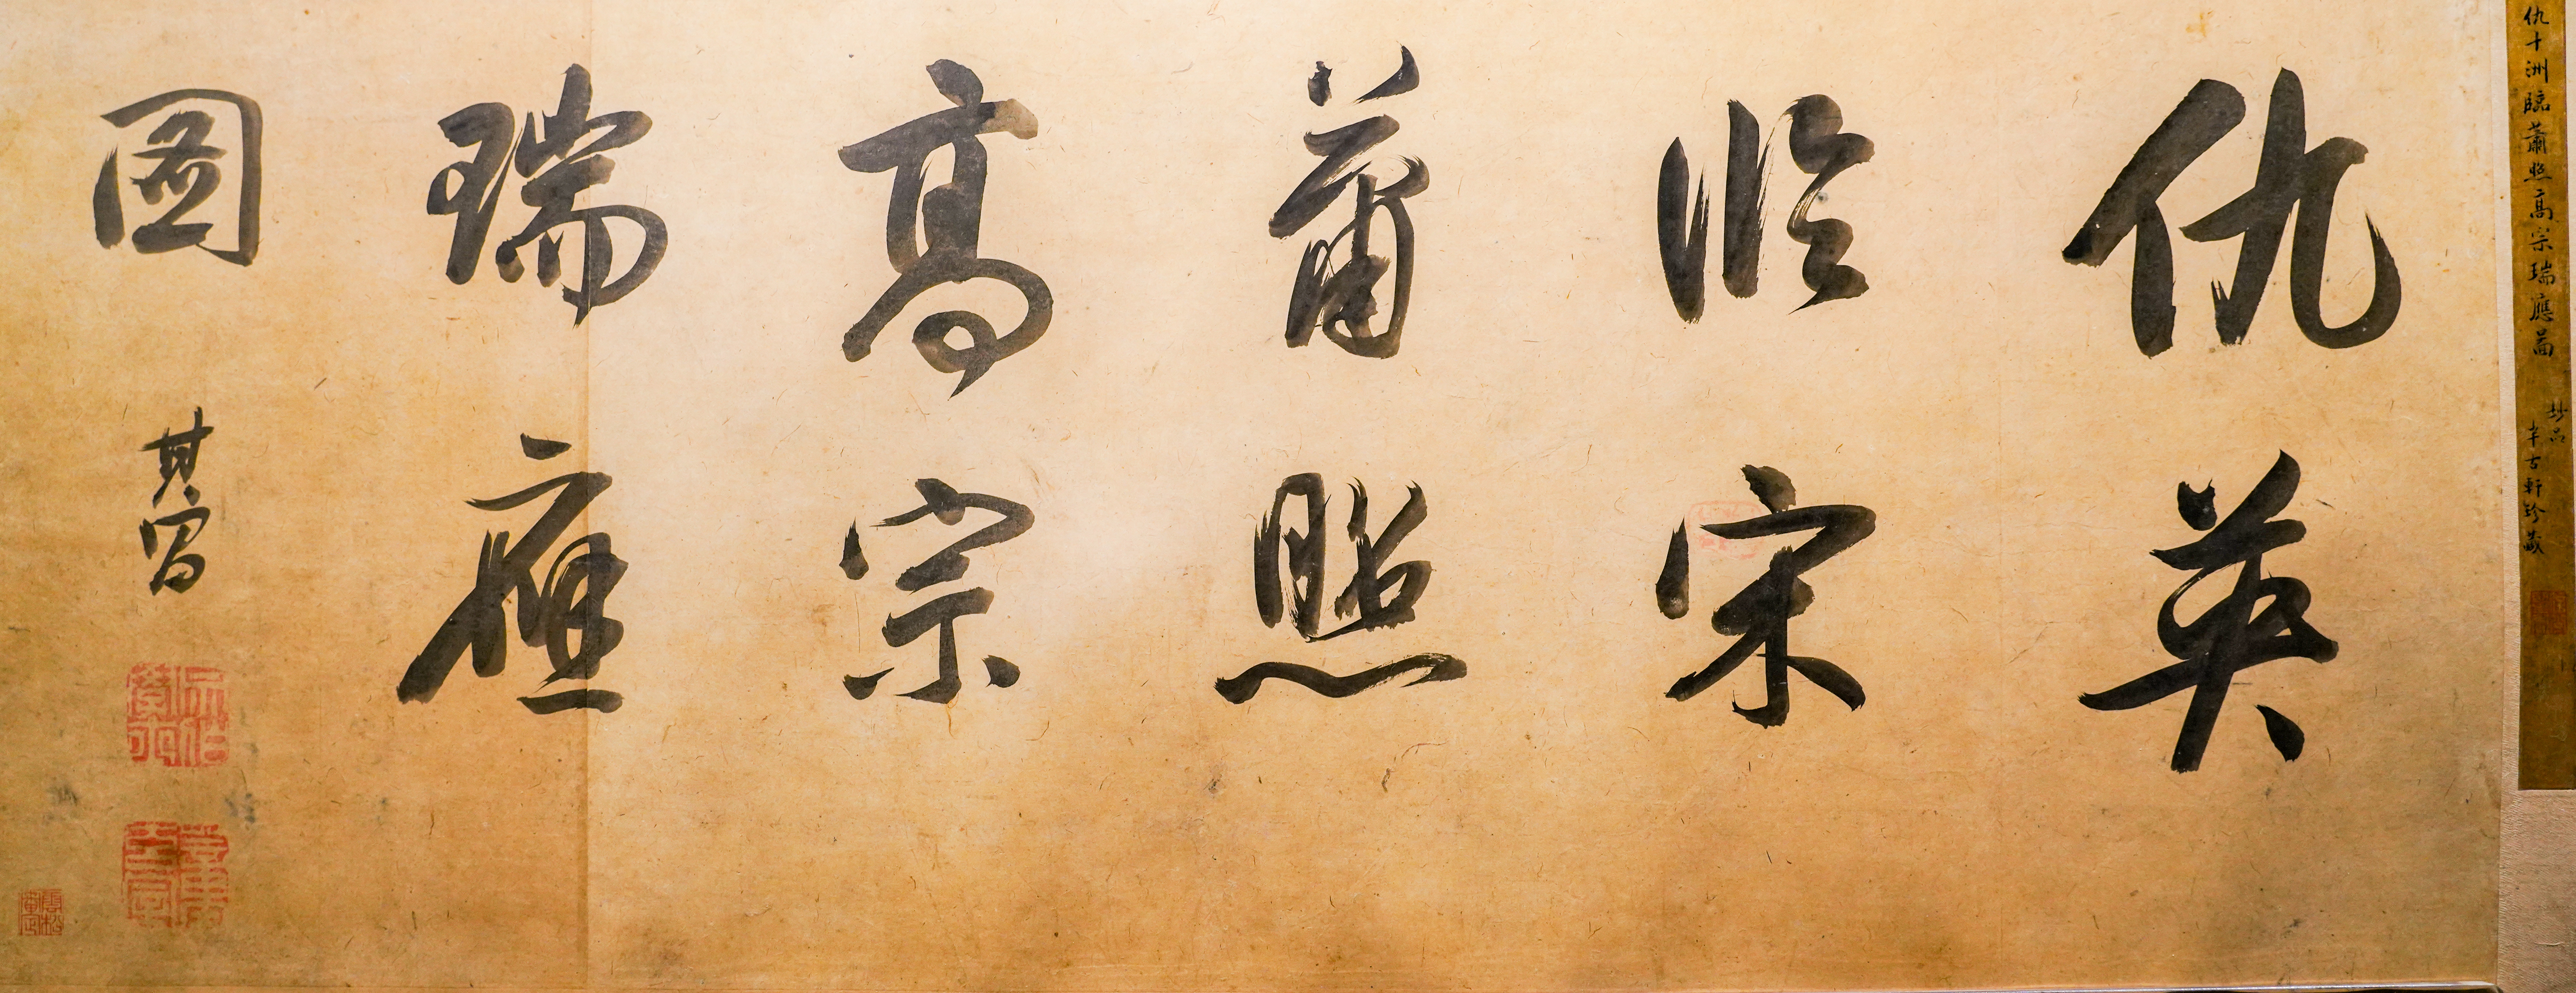 仇十洲臨蕭照高宗瑞應圖
妙品
半古軒珍藏
仇英
臨宋
蕭照
高宗
瑞應
圖
其昌